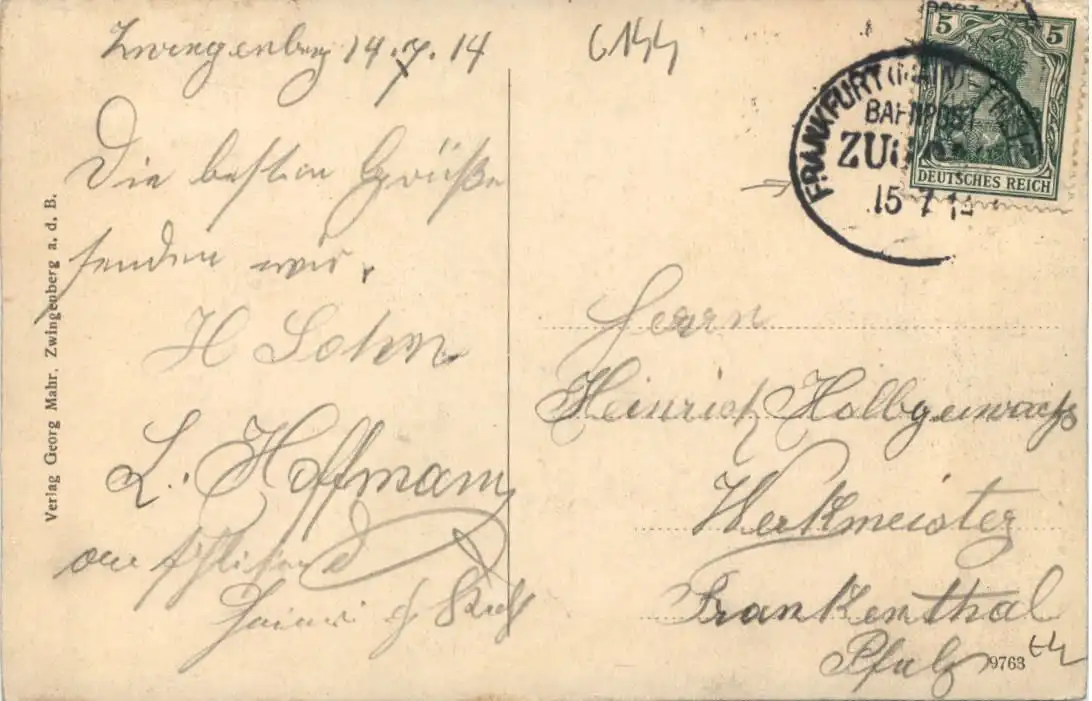 Zwingenberg 14.7.14
6144
Die besten Grüße
senden wir.
H Sohn
L. Hoffmann
Verlag Georg Mahr, Zwingenberg a. d. B.
5 5
DEUTSCHES REICH
FRANKFURT (MAIN)
BAHNPOST
ZUG
15 7 14
Herrn
Heinrich Holbgewachs
Werkmeister
Frankenthal
Pfalz
9763